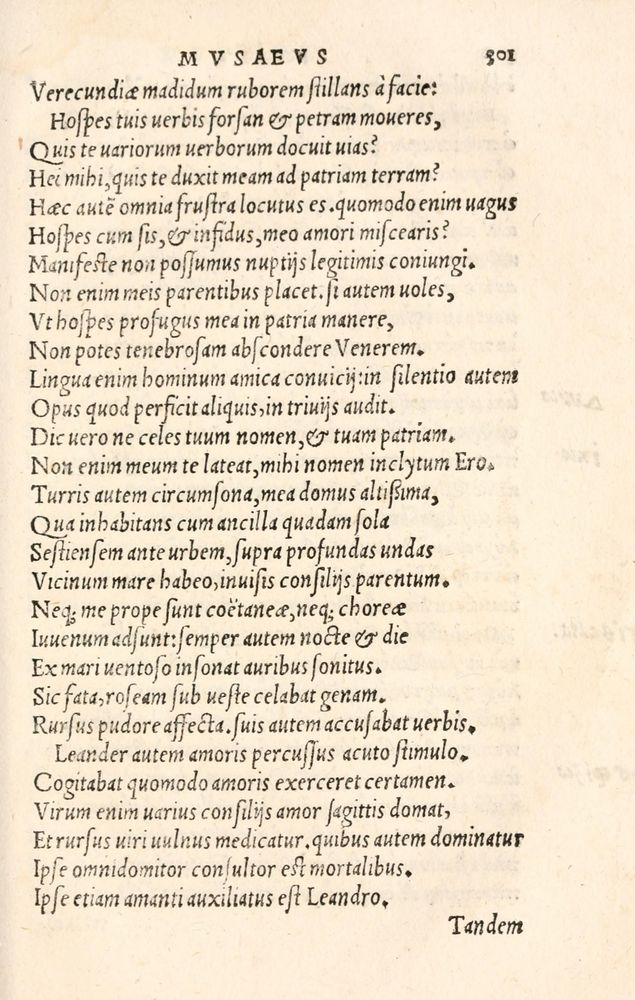 MVSAEVS 501
Verecundiæ madidum ruborem stillans à facie:
Hospes tuis uerbis forsan & petram moueres,
Quis te uariorum uerborum docuit uias?
Hei mihi, quis te duxit meam ad patriam terram?
Hæc autẽ omnia frustra locutus es. quomodo enim uagus
Hospes cum sis, & infidus, meo amori miscearis?
Manifeste non possumus nuptijs legitimis coniungi.
Non enim meis parentibus placet. si autem uoles,
Vt hospes profugus mea in patria manere,
Non potes tenebrosam abscondere Venerem.
Lingua enim hominum amica conuicij: in silentio autem
Opus quod perficit aliquis, in triuijs audit.
Dic uero ne celes tuum nomen, & tuam patriam.
Non enim meum te lateat, mihi nomen inclytum Ero.
Turris autem circumsona, mea domus altissima,
Qua inhabitans cum ancilla quadam sola
Sestiensem ante urbem, supra profundas undas
Vicinum mare habeo, inuisis consilijs parentum.
Neq; me prope sunt coëtaneæ, neq; choreæ
Iuuenum adsunt: semper autem nocte & die
Ex mari uentoso insonat auribus sonitus.
Sic fata, roseam sub ueste celabat genam.
Rursus pudore affecta. suis autem accusabat uerbis.
Leander autem amoris percussus acuto stimulo.
Cogitabat quomodo amoris exerceret certamen.
Virum enim uarius consilijs amor sagittis domat,
Et rursus uiri uulnus medicatur. quibus autem dominatur
Ipse omnidomitor consultor est mortalibus.
Ipse etiam amanti auxiliatus est Leandro.
Tandem